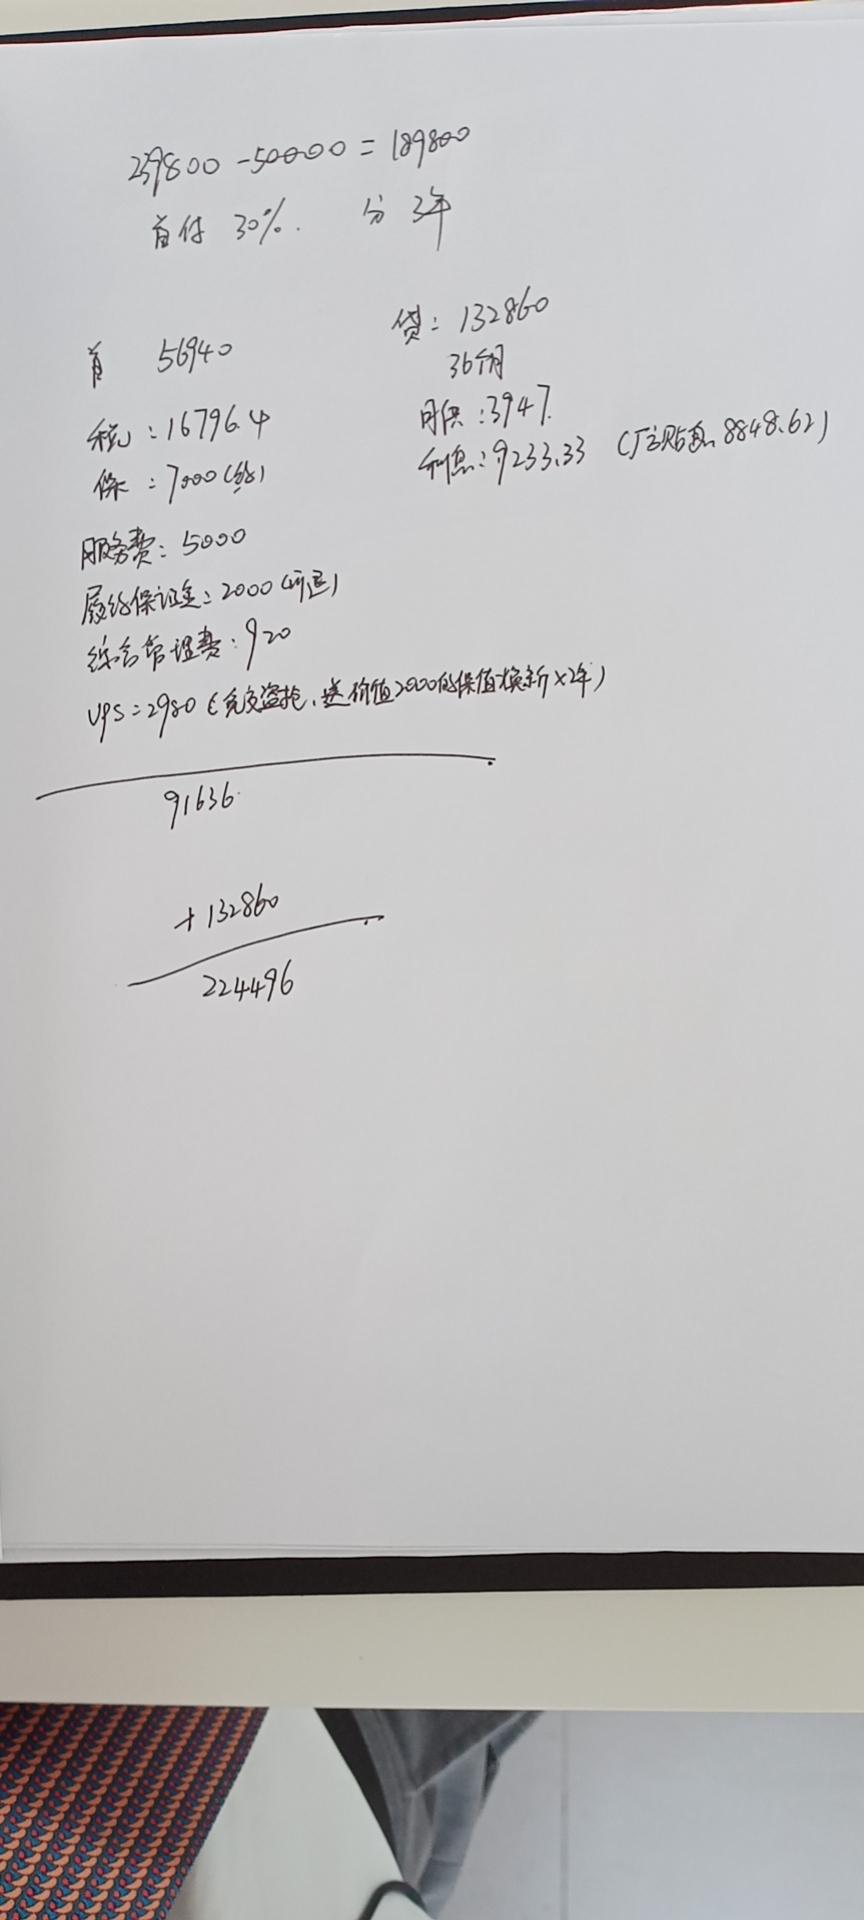 239800-50000=189800
首付 30%. 分 3年
首 56940
税:16796.4
保:7000(约)
服务费:5000
履约保证金:2000(可退)
综合管理费:920
UPS=2980(免交盗抢、送价值2000的保值换新×2年)
91636
+132860
224496
贷:132860
36个月
月供:3947.
利息:9233.33 (厂家贴息8848.62)